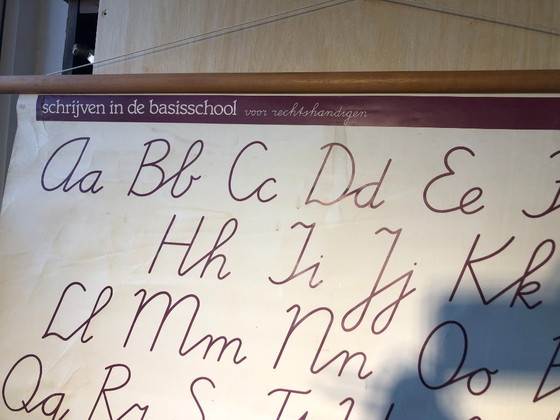 schrijven in de basisschool voor rechtshandigen
Aa Bb Cc Dd Ee F
Hh Ii Jj Kk
Ll Mm Nn Oo
Qq Rr S